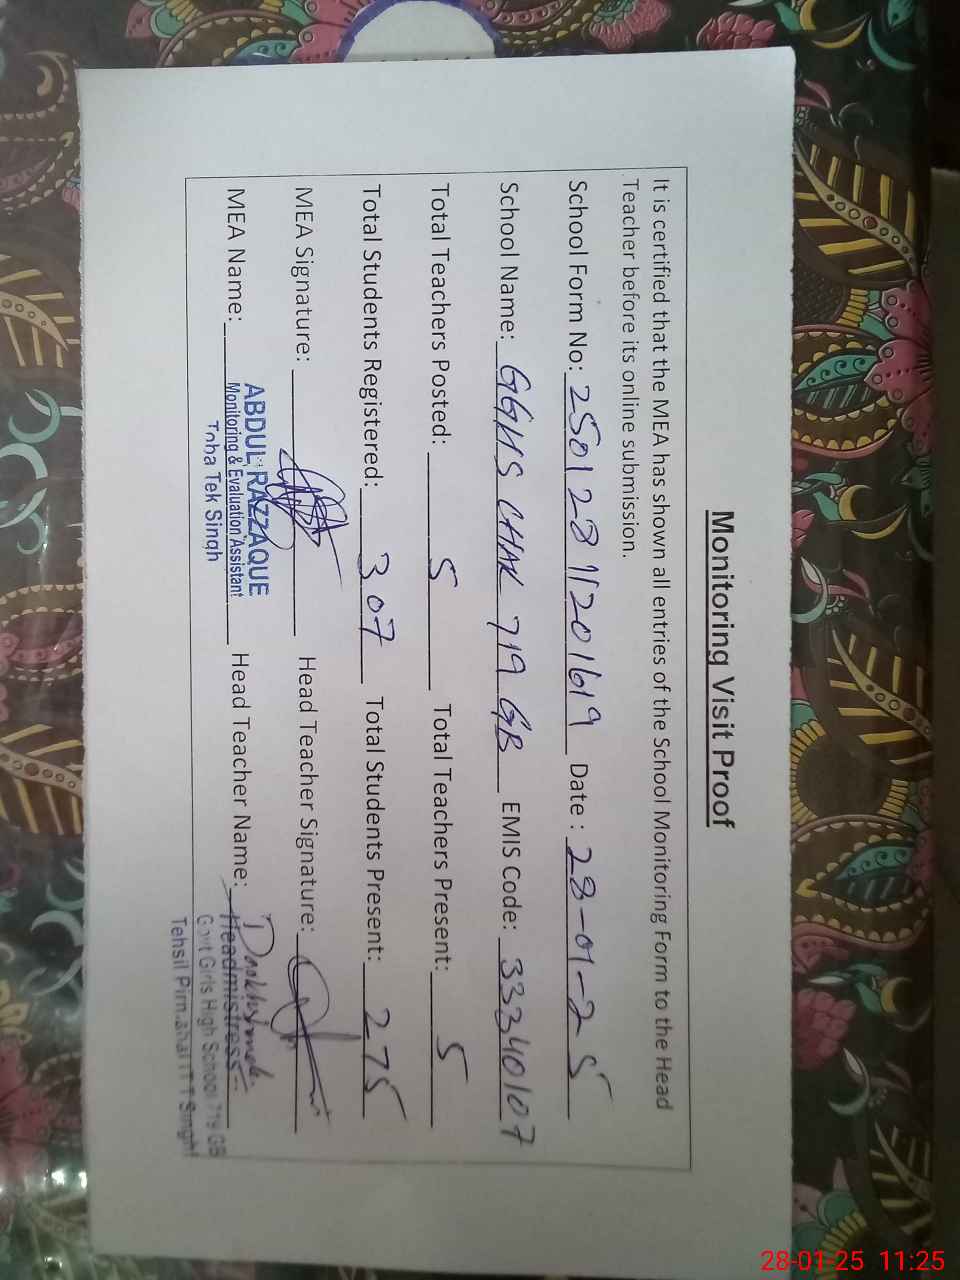 Monitoring Visit Proof
It is certified that the MEA has shown all entries of the School Monitoring Form to the Head
Teacher before its online submission.
School Form No: 25012811201619 Date : 28-01-25
School Name: GGHS CHAK 719 GB EMIS Code: 33340107
Total Teachers Posted: 5 Total Teachers Present: 5
Total Students Registered: 307 Total Students Present: 275
MEA Signature: Head Teacher Signature:
MEA Name: ABDUL RAZZAQUE Head Teacher Name:
Monitoring & Evaluation Assistant
Toba Tek Singh
Headmistress
Govt Girls High School 719 GB
Tehsil Pirmahal (T T Singh)
28-01-25 11:25